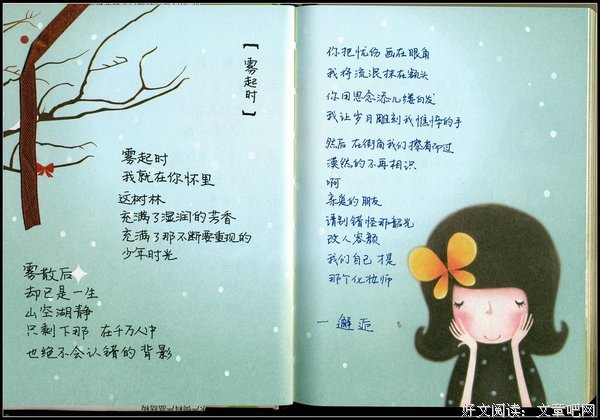 【雾起时】
雾起时
我就在你怀里
这树林
充满了湿润的芳香
充满了那不断要重现的
少年时光
雾散后
却已是一生
山空湖静
只剩下那 在千万人中
也绝不会认错的 背影
你把忧伤 画在眼角
我将流浪 抹在额头
你用思念添几缕白发
我让岁月雕刻我憔悴的手
然后在街角我们擦肩而过
漠然的不再相识
啊
亲爱的朋友
请别错怪那韶光
改人容颜
我们自己 才是
那个化妆师
— 邂逅
好文阅读：文章吧网